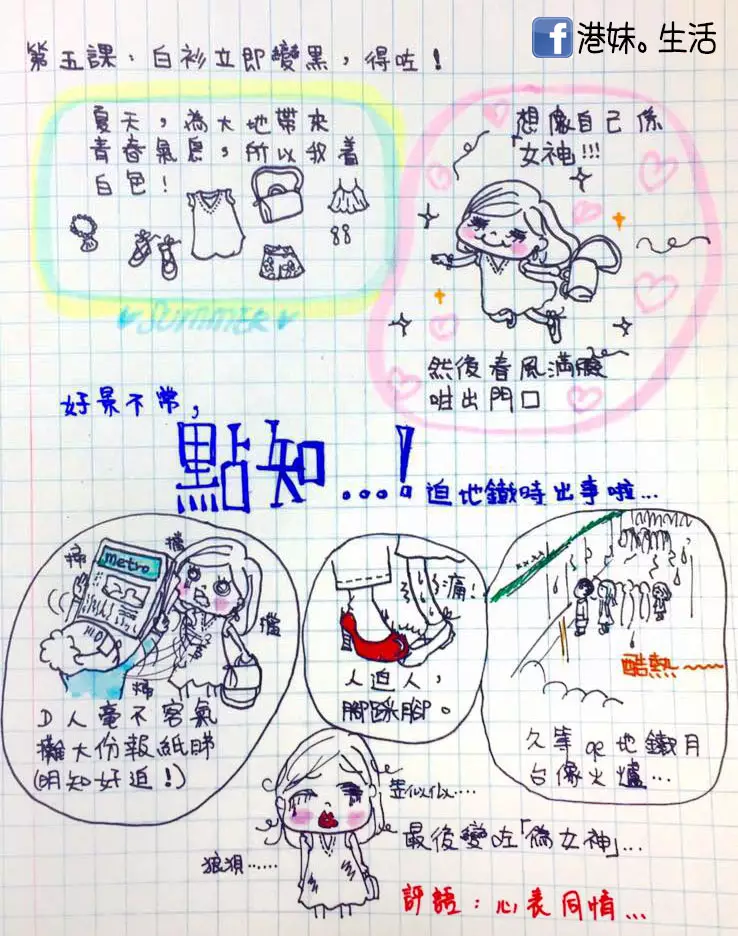 港妹。生活
第五課：白衫立即變黑，得咗！
夏天，為大地帶來
青春氣息，所以我着
白色！
SUMMER
想像自己係
「女神」!!!
然後春風滿臉
咁出門口
好景不常，
點知...!
迫地鐵時出事啦...
掃
擋
metro
擋
掃
D人毫不客氣
攤大份報紙睇
(明知好迫！)
痛！
人迫人，
腳踩腳。
酷熱
久等op地鐵月
台像火爐...
恍似似....
狼狽......
最後變咗「偽女神」...
評語：心表同情...